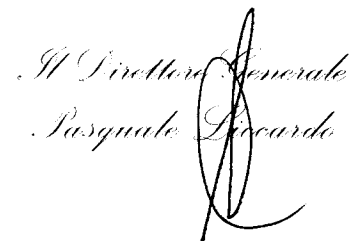 Il Direttore Generale
Pasquale Liccardo